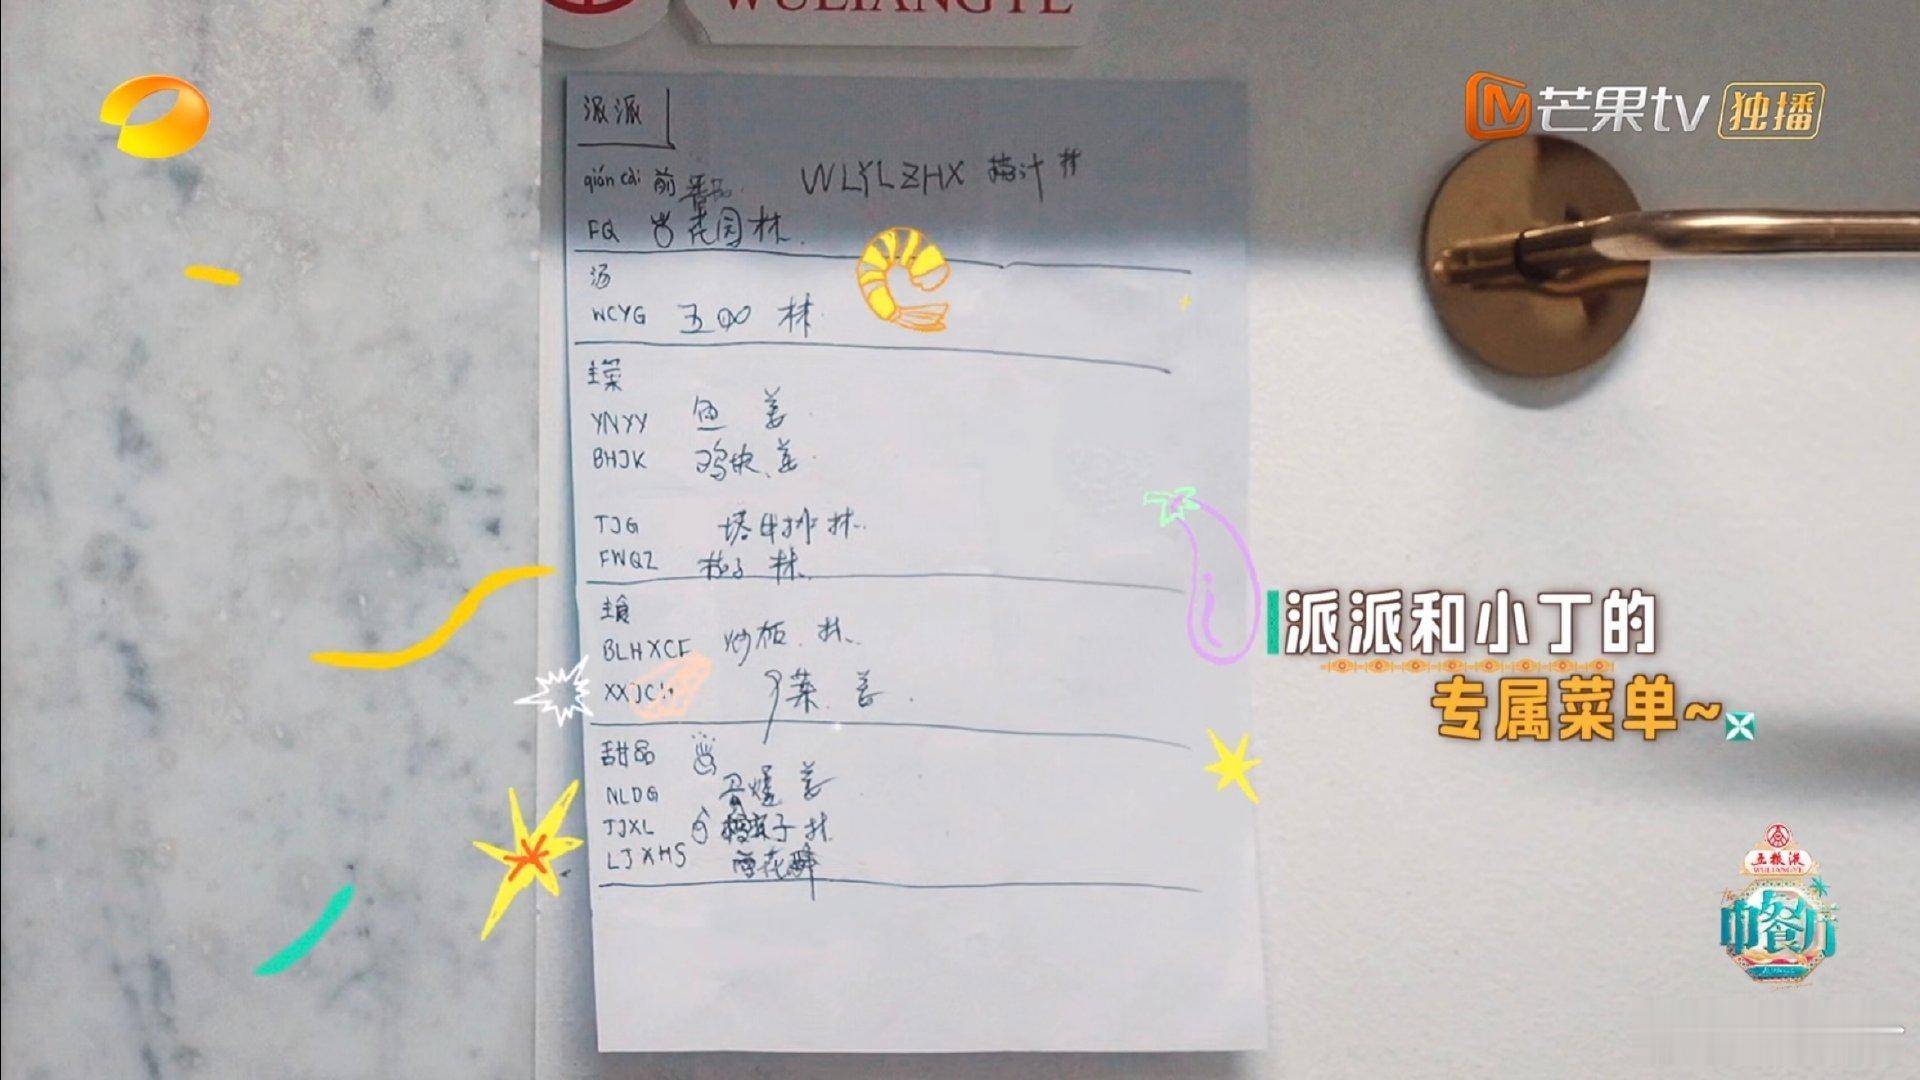 WULIANGYE
芒果tv 独播
派派
qián cài 前
WLYLZHX 茄汁
FQ 花园林
汤
WCYG 五 林
主菜
YNYY 鱼 姜
BHJK 鸡块 姜
TJG 塔牛排 林
FWQZ 茄子 林
主食
BLHXCF
XXJC 菜 姜
甜品
NLDG 姜
TJXL
LJXHS 雪花酥
派派和小丁的
专属菜单~
五粮液
WULIANGYE
中餐厅